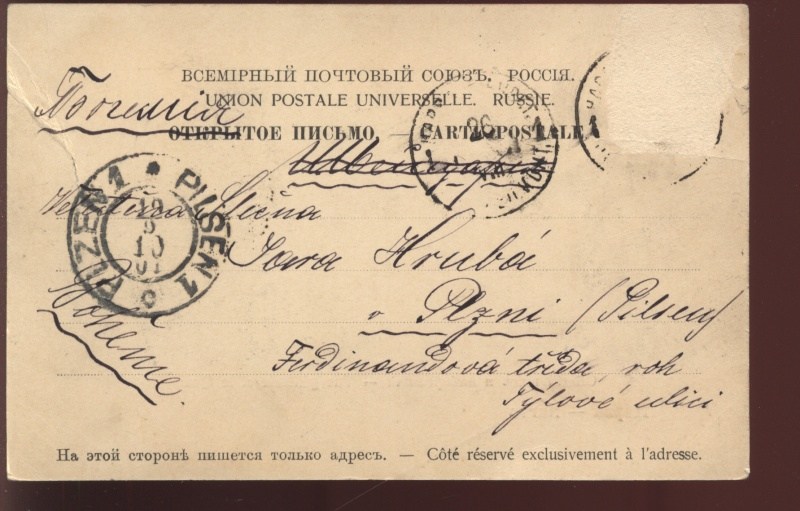 ВСЕМІРНЫЙ ПОЧТОВЫЙ СОЮЗЪ. РОССІЯ.
UNION POSTALE UNIVERSELLE. RUSSIE.
Богемія
ОТКРЫТОЕ ПИСЬМО. — CARTE POSTALE
PLZEŇ 1 * PILSEN 1
10
01
Slečna
Jara Hrubá
v Plzni (Pilsen)
Bohême.
Ferdinandová třída roh
Týlové ulici
На этой сторонѣ пишется только адресъ. — Côté réservé exclusivement à l'adresse.